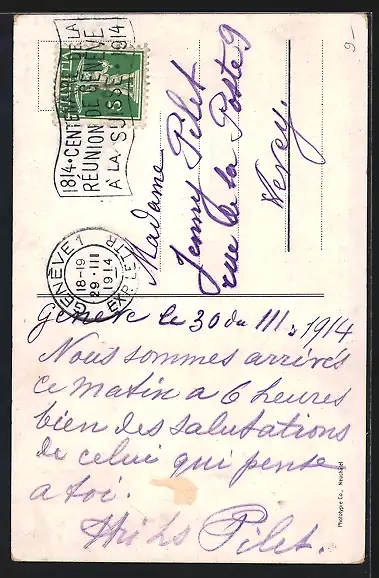 9-
HELVETIA
1814 • CENTENAIRE DE LA
RÉUNION DE GENÈVE
A LA SUISSE • 1914
GENÈVE 1
18-19
29 • III
1914
EXP. LETTR.
Madame
Jenny Pilet
rue de la Poste 9
Vevey.
Genève le 30 du III 1914
Nous sommes arrivés
ce matin a 6 heures
bien des salutations
de celui qui pense
a toi.
Pilet.
Phototypie Co., Neuchâtel